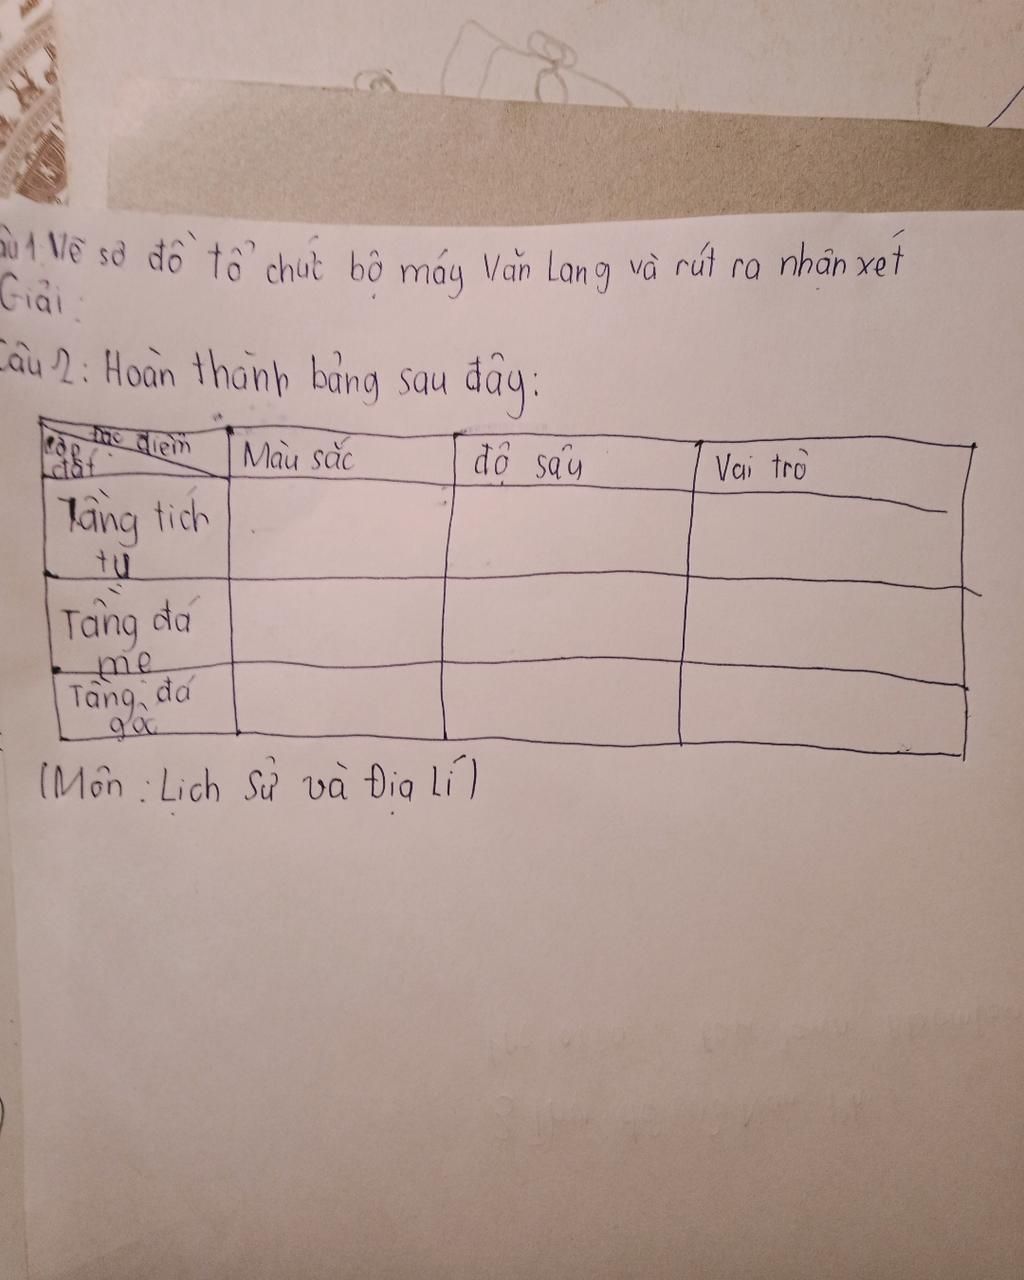 Câu 1: Vẽ sơ đồ tổ chức bộ máy Văn Lang và rút ra nhận xét
Giải:
Câu 2: Hoàn thành bảng sau đây:
đặc điểm
đất
Màu sắc
độ sâu
Vai trò
Tầng tích
tụ
Tầng đá
mẹ
Tầng đá
gốc
(Môn: Lịch Sử và Địa Lí)